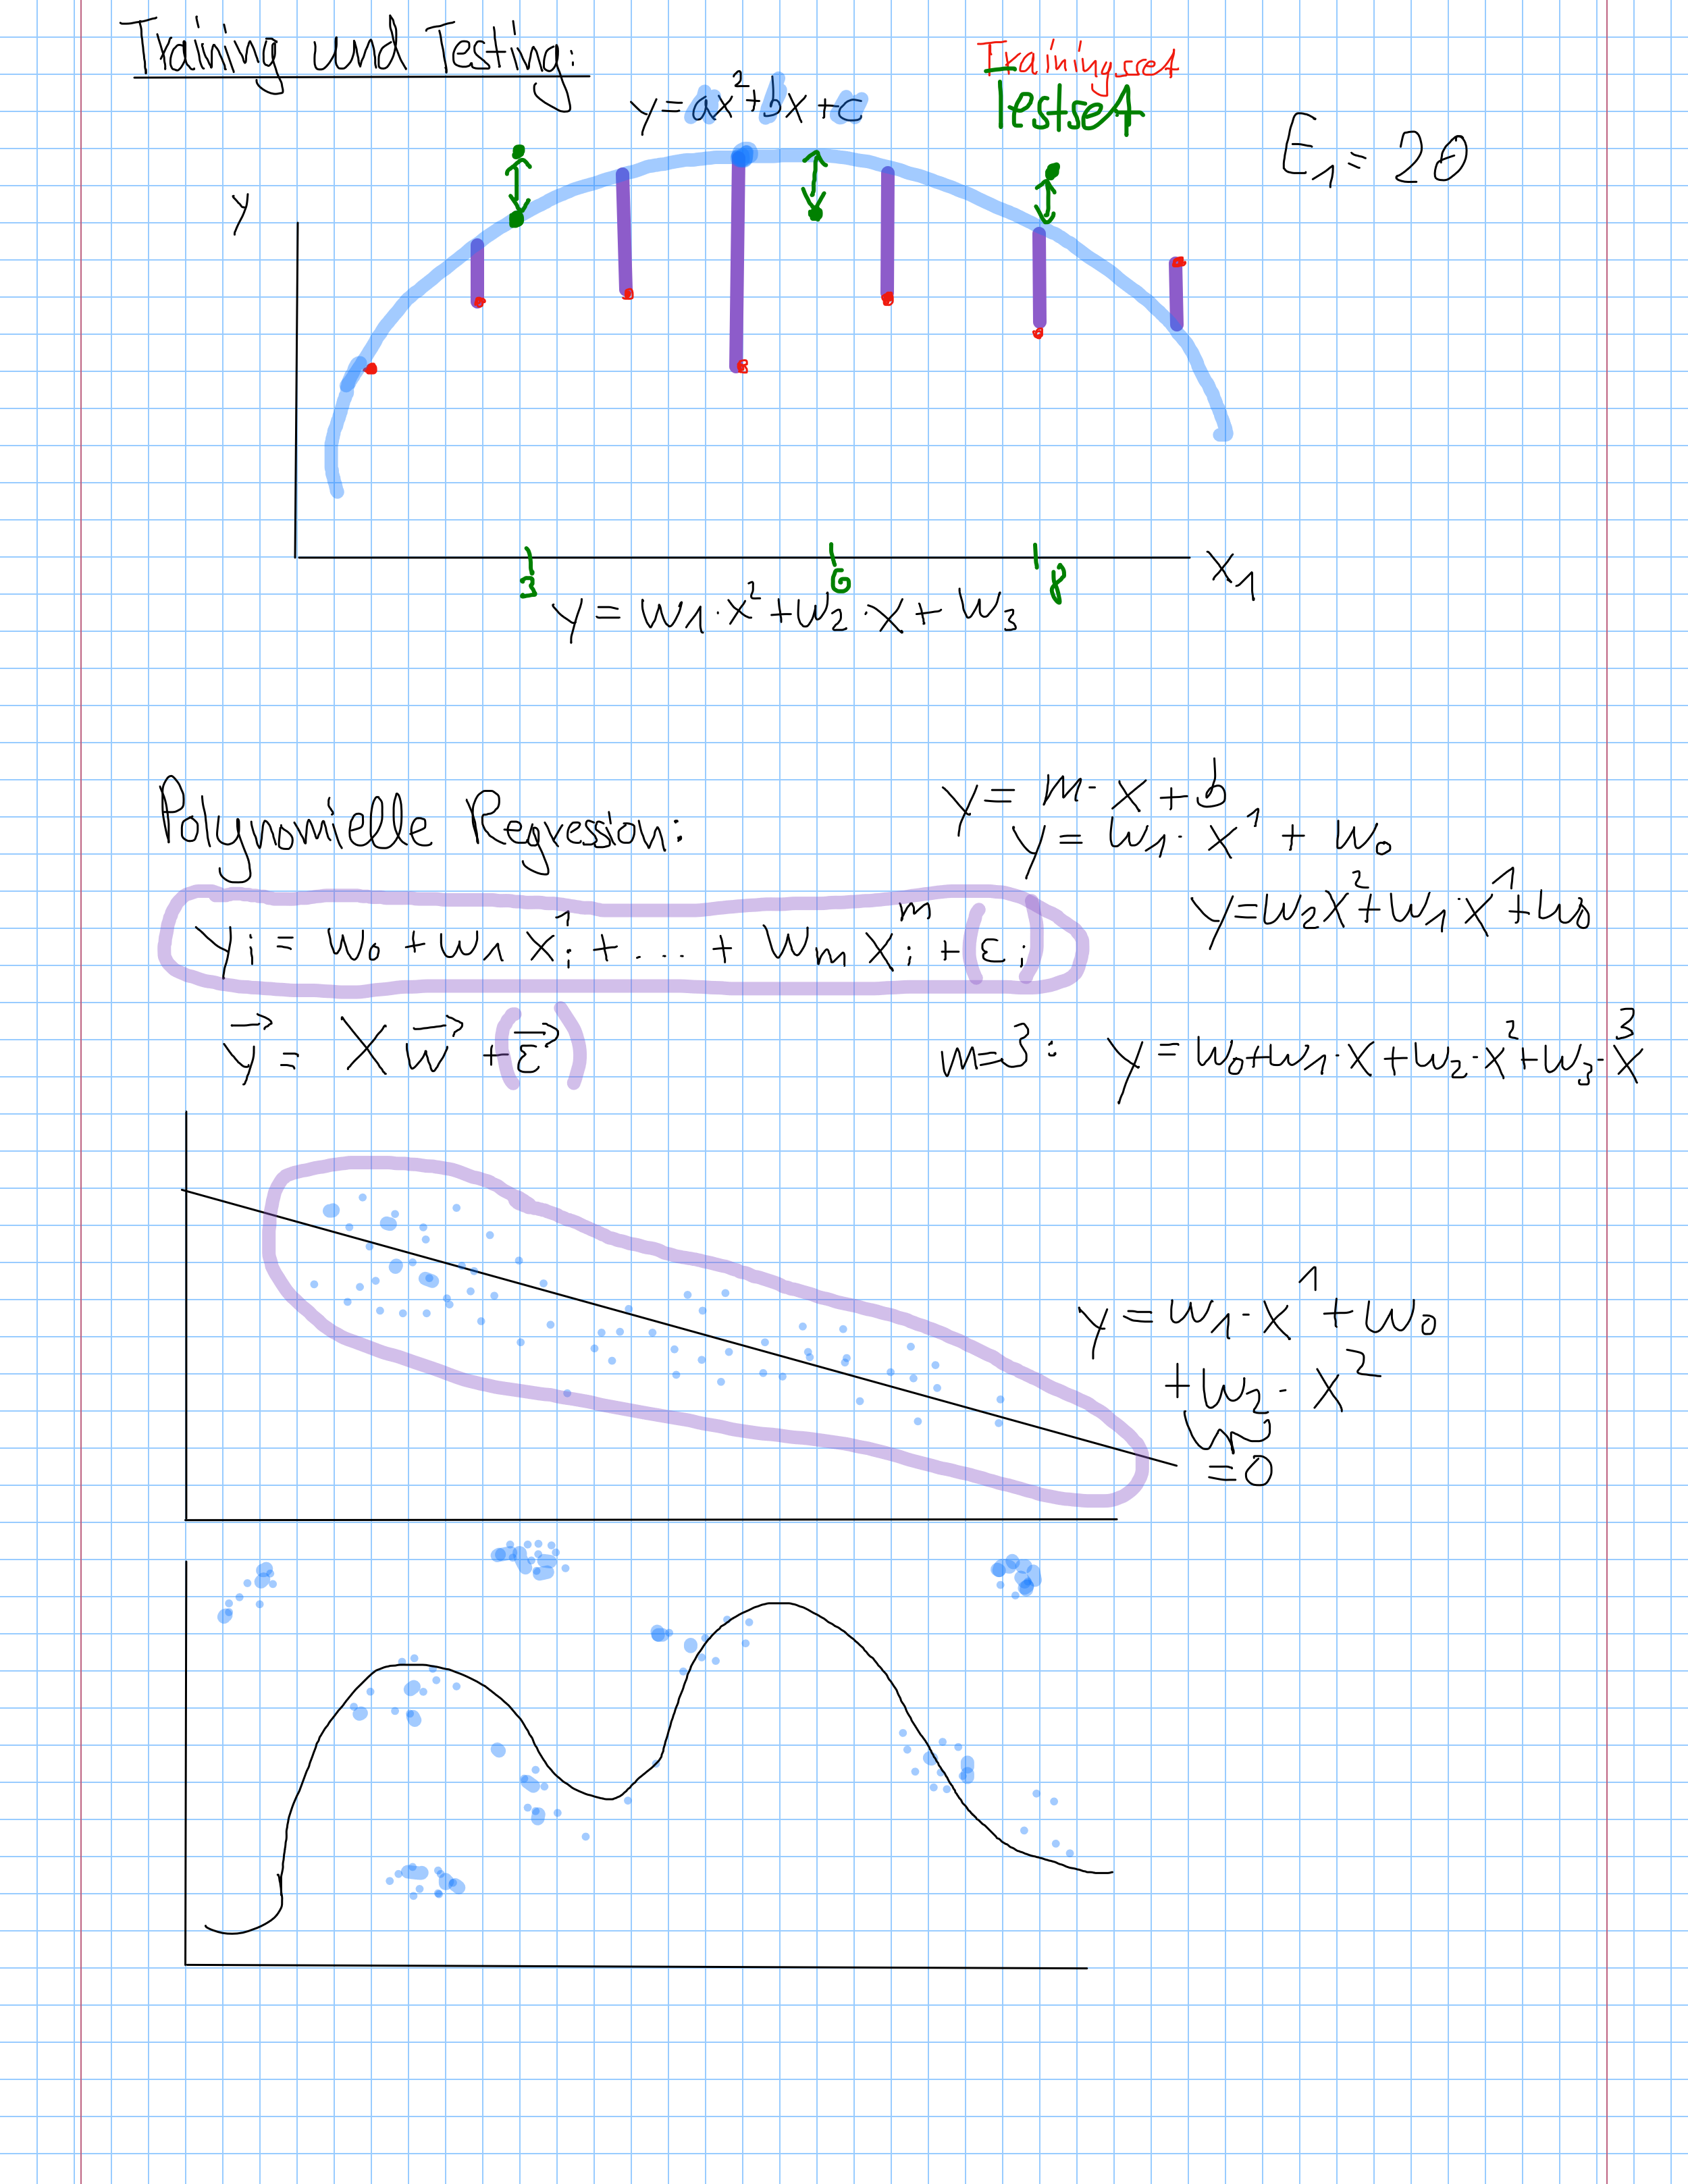 Training und Testing:
Trainingsset
Testset
y = ax² + bx + c
E₁ = 20
y
3 6 8
x₁
y = w1 · x² + w2 · x + w3
y = m · x + b
Polynomielle Regression:
y = w1 · x¹ + w₀
y = w2 x² + w1 · x¹ + w₀
yᵢ = w₀ + w1 xᵢ¹ + ... + wₘ xᵢᵐ + (εᵢ)
y⃗ = X w⃗ + (ε⃗)
m=3: y = w₀ + w1 · x + w2 · x² + w3 · x³
y = w1 · x¹ + w₀
+ w2 · x²
= 0